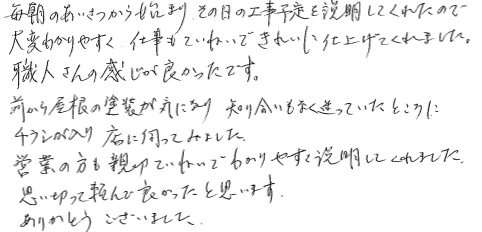 毎朝のあいさつから始まり その日の工事予定を説明してくれたので
大変わかりやすく 仕事もていねいできれいに仕上げてくれました。
職人さんの感じが良かったです。
前から屋根の塗装が気になり 知り合いもなく迷っていたところに
チラシが入り 店に伺ってみました。
営業の方も親切ていねいでわかりやすく説明してくれました。
思い切って頼んで良かったと思います。
ありがとう ございました。